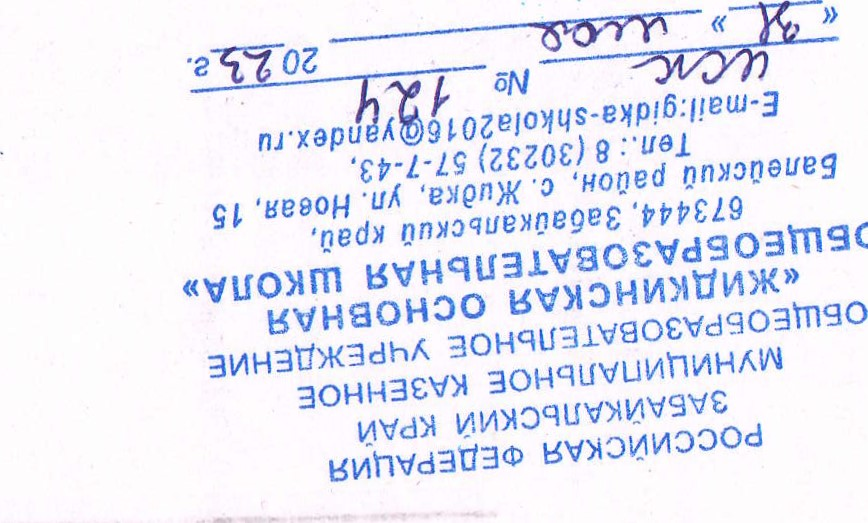 РОССИЙСКАЯ ФЕДЕРАЦИЯ
ЗАБАЙКАЛЬСКИЙ КРАЙ
МУНИЦИПАЛЬНОЕ КАЗЕННОЕ
ОБЩЕОБРАЗОВАТЕЛЬНОЕ УЧРЕЖДЕНИЕ
«ЖИДКИНСКАЯ ОСНОВНАЯ
ОБЩЕОБРАЗОВАТЕЛЬНАЯ ШКОЛА»
673444, Забайкальский край,
Балейский район, с. Жидка, ул. Новая, 15
Тел.: 8 (30232) 57-7-43,
E-mail:gidka-shkola2016@yandex.ru
исх № 124
«31» 2023 г.